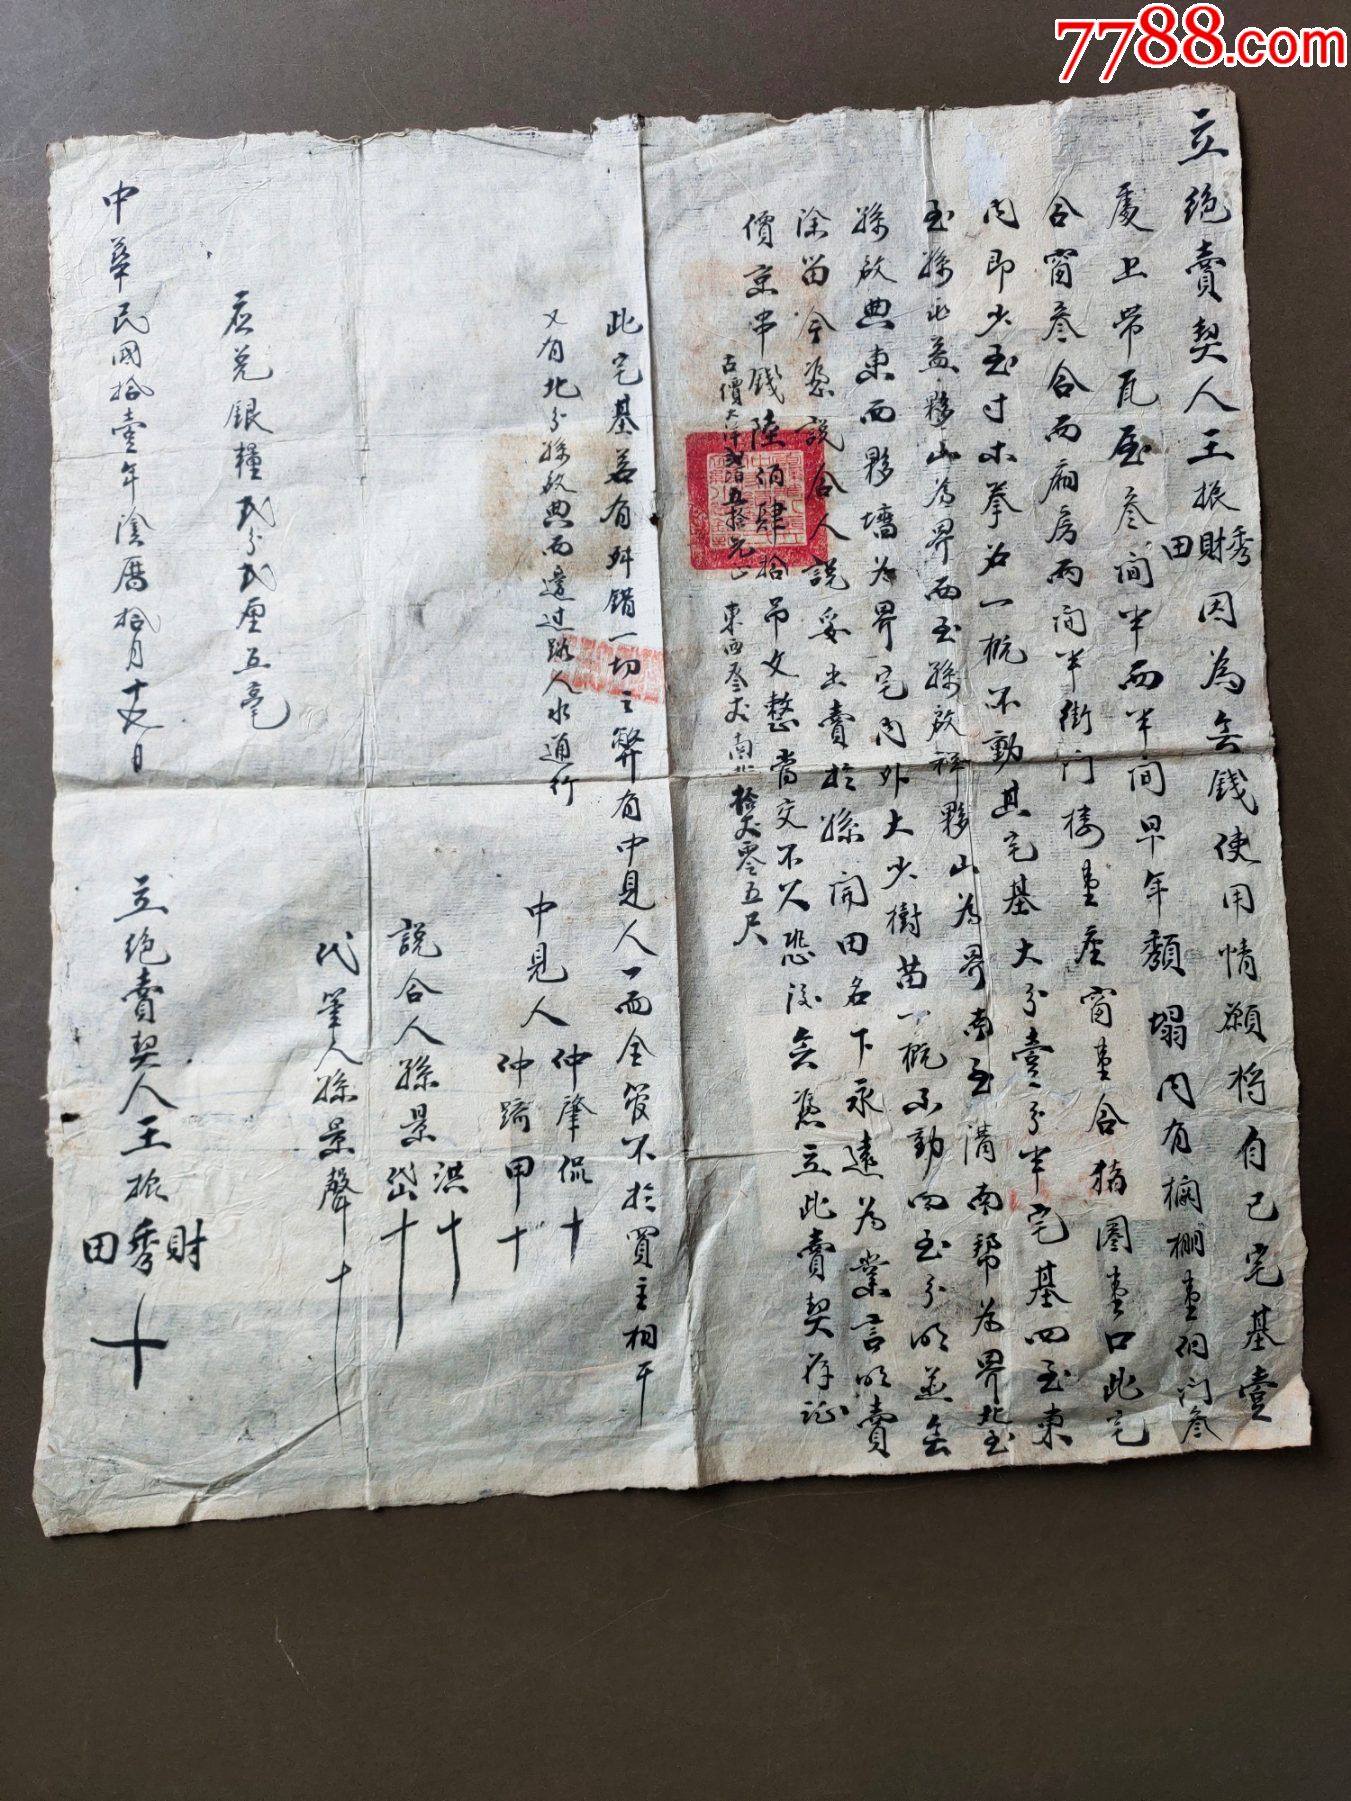 7788.com
立絶賣契人王振秀財田因為無錢使用情願將自己宅基壹
處上帶瓦屋叁間半西半間早年頹塌内有欄棚壹個门叁
合窗叁合西廂房兩间半街门楼壹座窗壹合猪圈壹口此宅
内即少至寸木拳石一概不動其宅基大分壹分半宅基四至東
至孫永益夥山為界西至孫啟祥夥山為界南至溝南幫為界北至
孫啟典東西夥墻为界宅内外大少樹苗一概不動四至分明並無
除留今憑説合人説妥出賣於孫開田名下永遠为業言明賣
價京串錢陸佰肆拾吊文整當交不欠恐後無憑立此賣契存证
古價大洋貳佰五拾元正 東西叁丈 南北拾丈零五尺
此宅基若有舛錯一切之弊有中見人一面全管不於買主相干
又有北分孫啟典西邊过路人水通行
中見人 仲肇侃十 仲躋甲十
説合人孫景 洪十 岱十
代筆人孫景聲十
应兑銀糧弍分弍厘五毫
中華民國拾壹年陰曆拾月十九日
立絶賣契人王振 財秀田 十